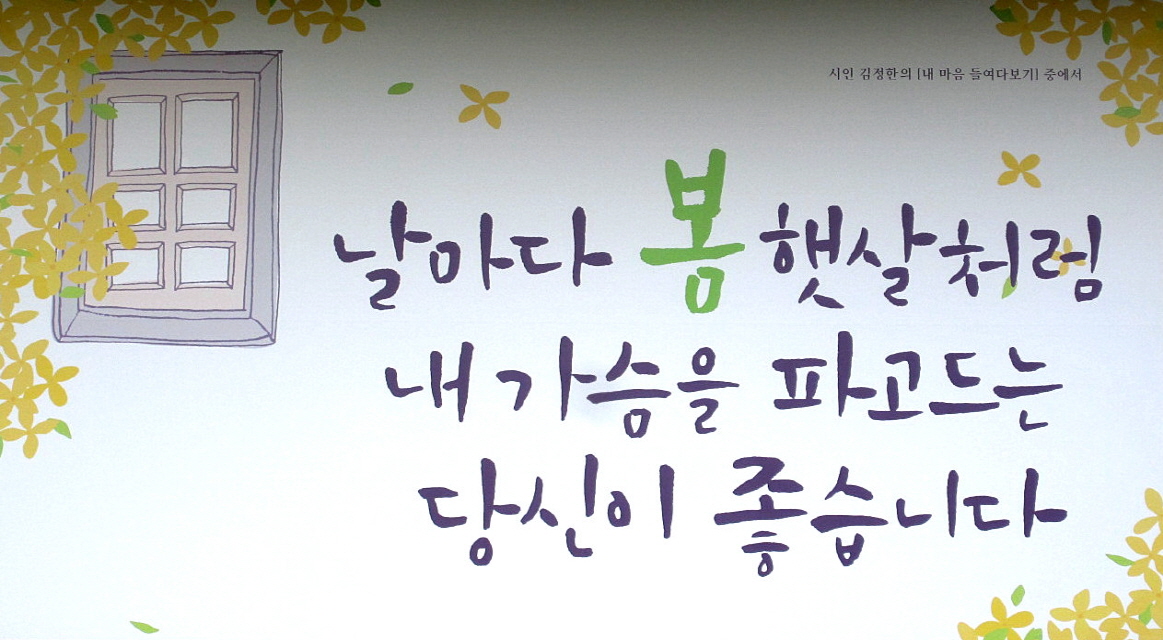 시인 김정한의 [내 마음 들여다보기] 중에서
날마다 봄 햇살처럼
내 가슴을 파고드는
당신이 좋습니다